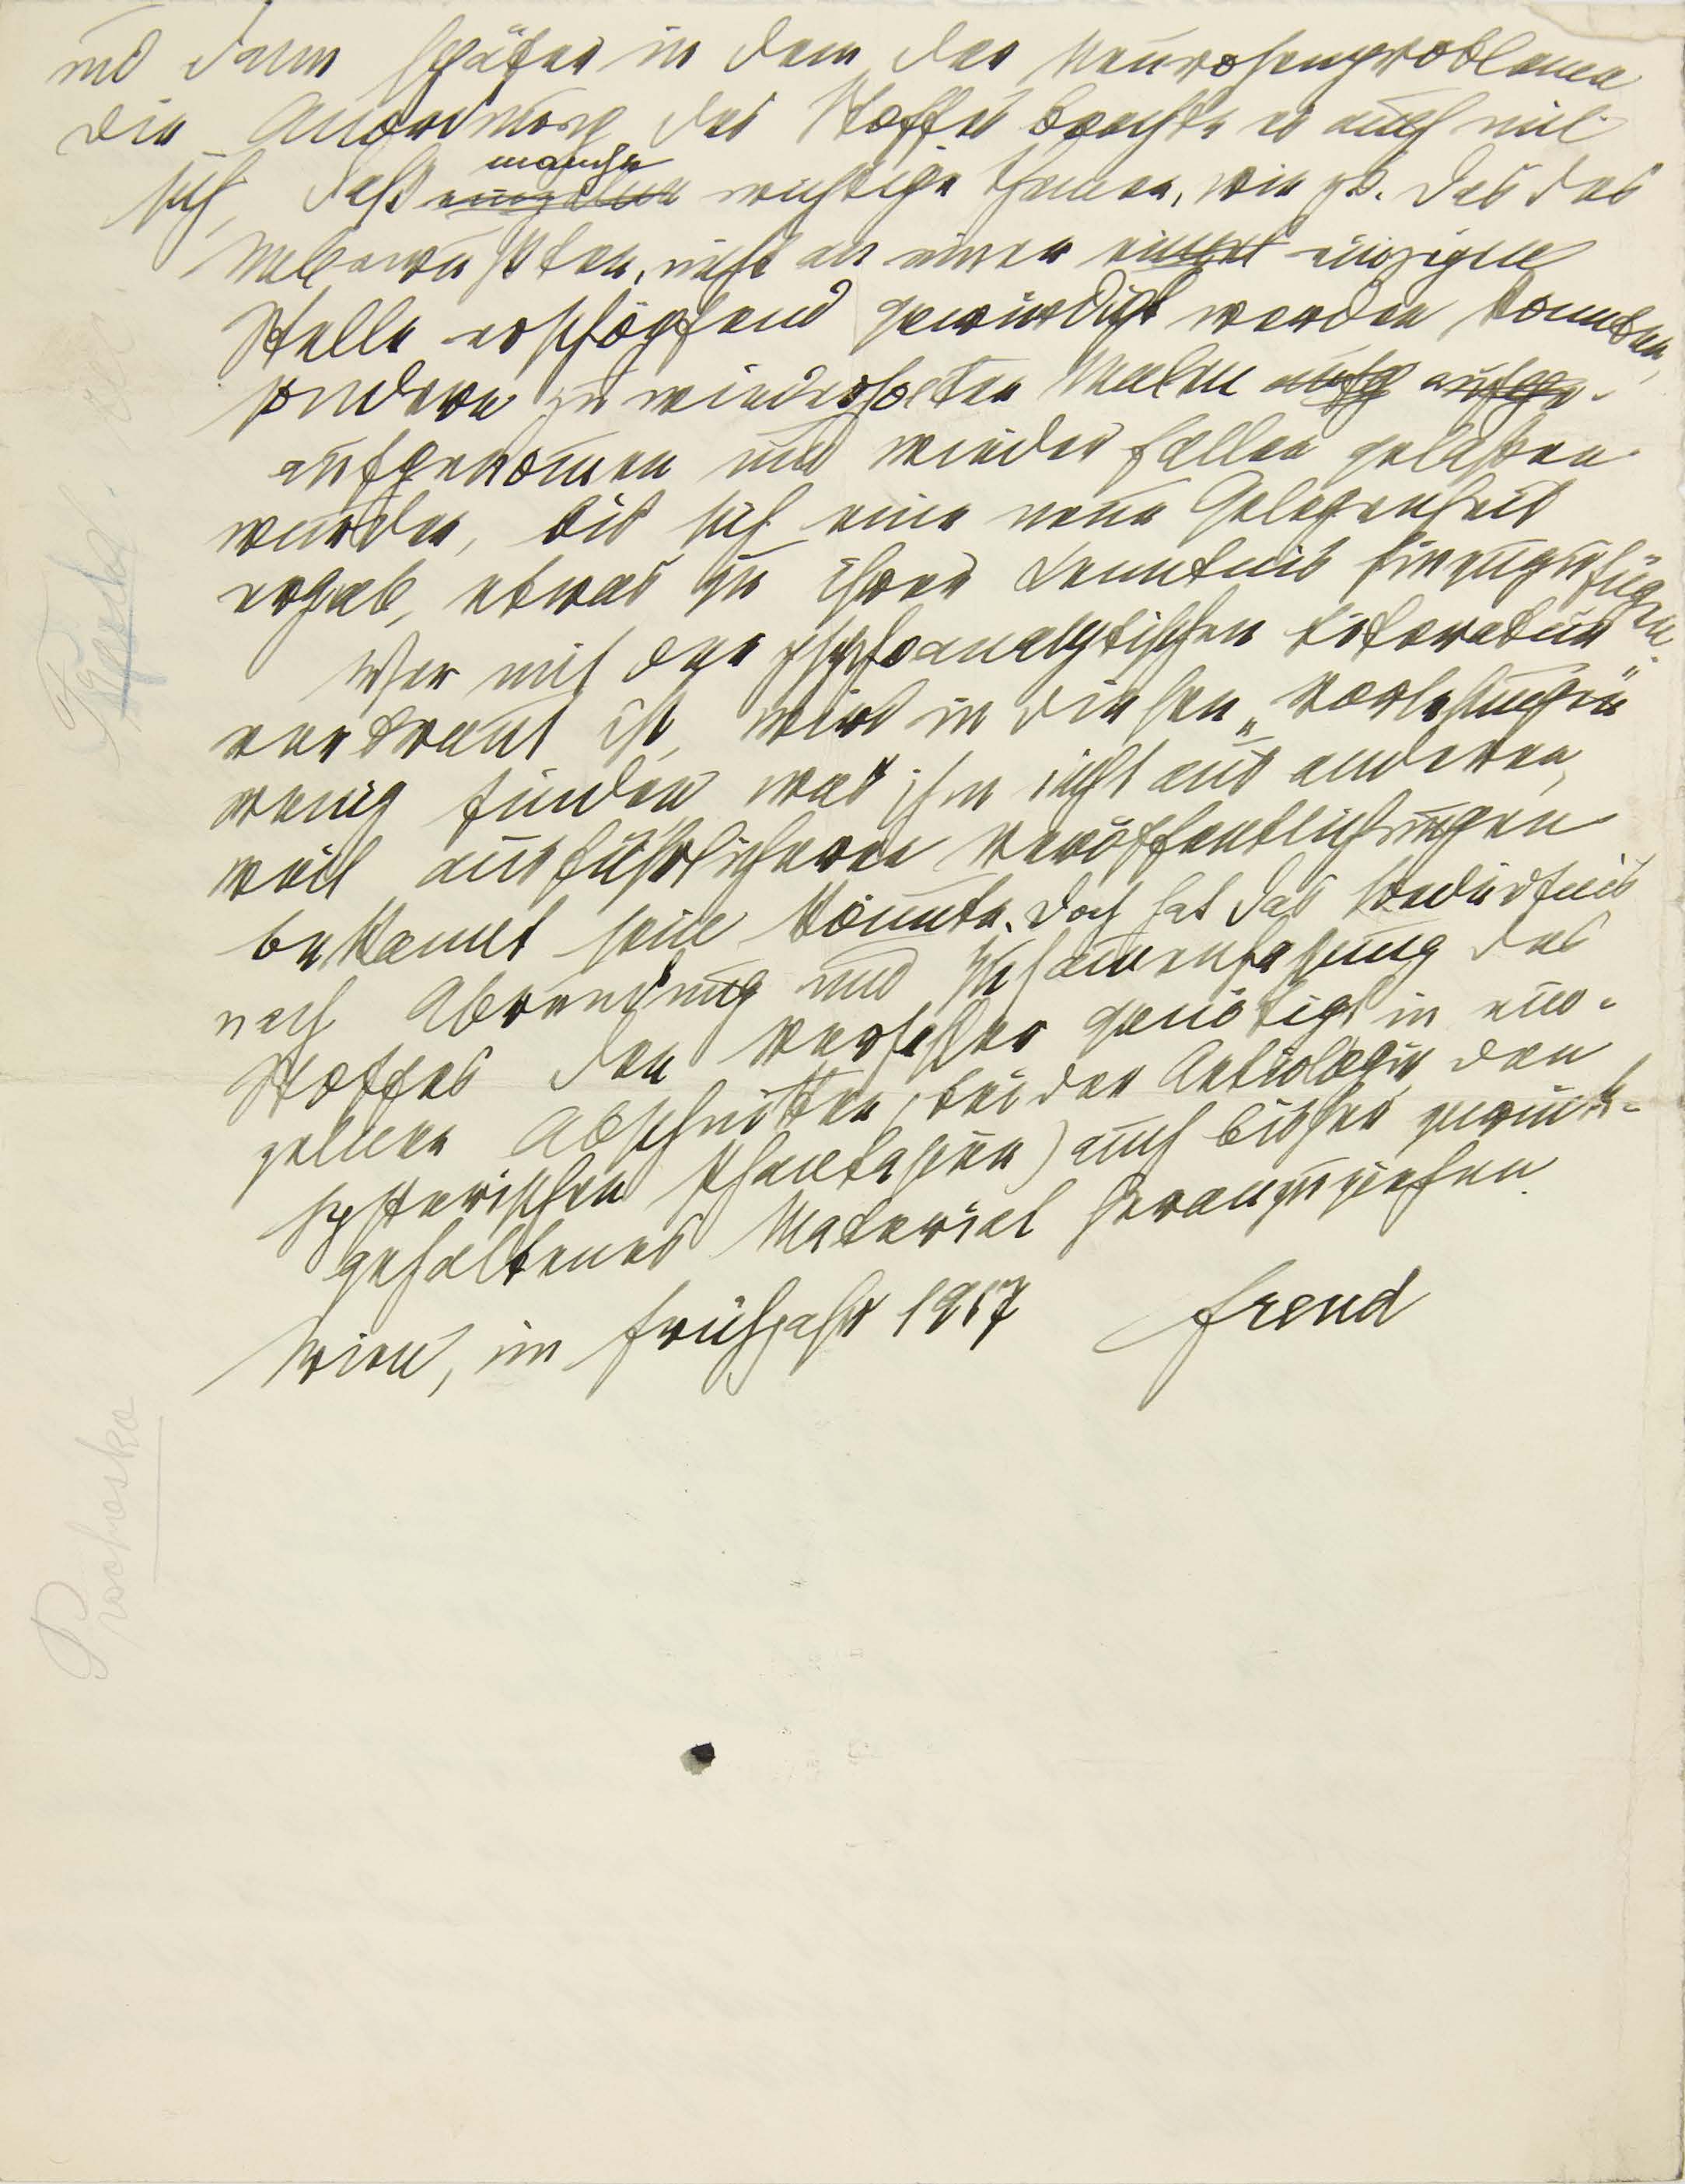 und dann später in dem der Neurosenprobleme
die Anordnung des Stoffes brachte es auch mit
manche
sich, daß einzelne wichtige Themen, wie zB. das des
Unbewußten, nicht an einer einzel einzigen
Stelle erschöpfend gewürdigt werden konnten,
sondern zu wiederholten Malen aufg aufge-
aufgenommen und wieder fallen gelassen
wurden, bis sich eine neue Gelegenheit
ergab, etwas zu ihrer Kenntnis hinzuzufügen.
Wer mit der psychoanalytischen Literatur
vertraut ist, wird in diesen „Vorlesungen“
wenig finden was ihm nicht aus anderen,
weit ausführlicheren Veröffentlichungen
bekannt sein könnte. Doch hat das Bedürfnis
nach Abrundung und Zusammenfassung des
Stoffes den Verfasser genötigt in ein-
zelnen Abschnitten (bei der Aetiologie, den
hysterischen Phantasien) auch bisher zurück-
gehaltenes Material heranzuziehen.
Wien, im Frühjahr 1917 Freud